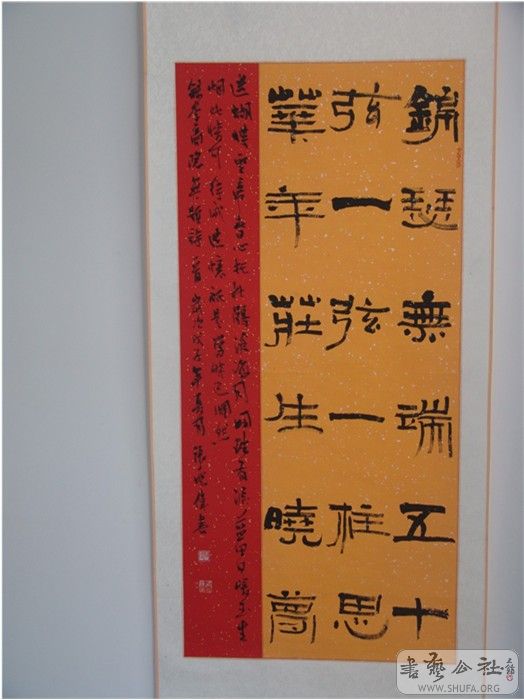 錦瑟無端五十
弦一弦一柱思
華年莊生曉夢
迷蝴蝶望帝春心托杜鵑滄海月明珠有淚藍田日暖玉生
烟此情可待成追憶祇是當時已惘然
李商隱無題詩一首歲次戊子年夏月張
書藝公社
WWW.SHUFA.ORG